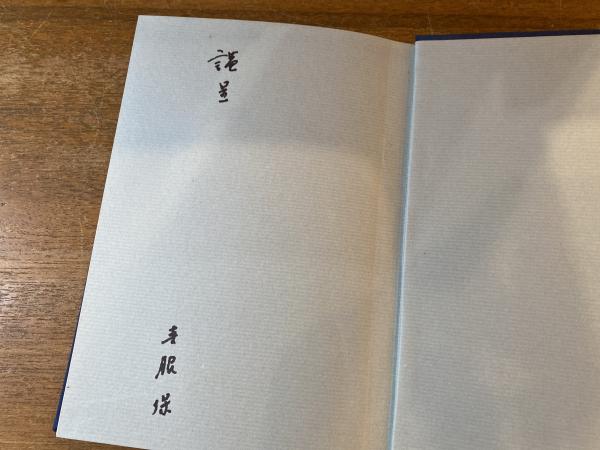 謹呈
服保